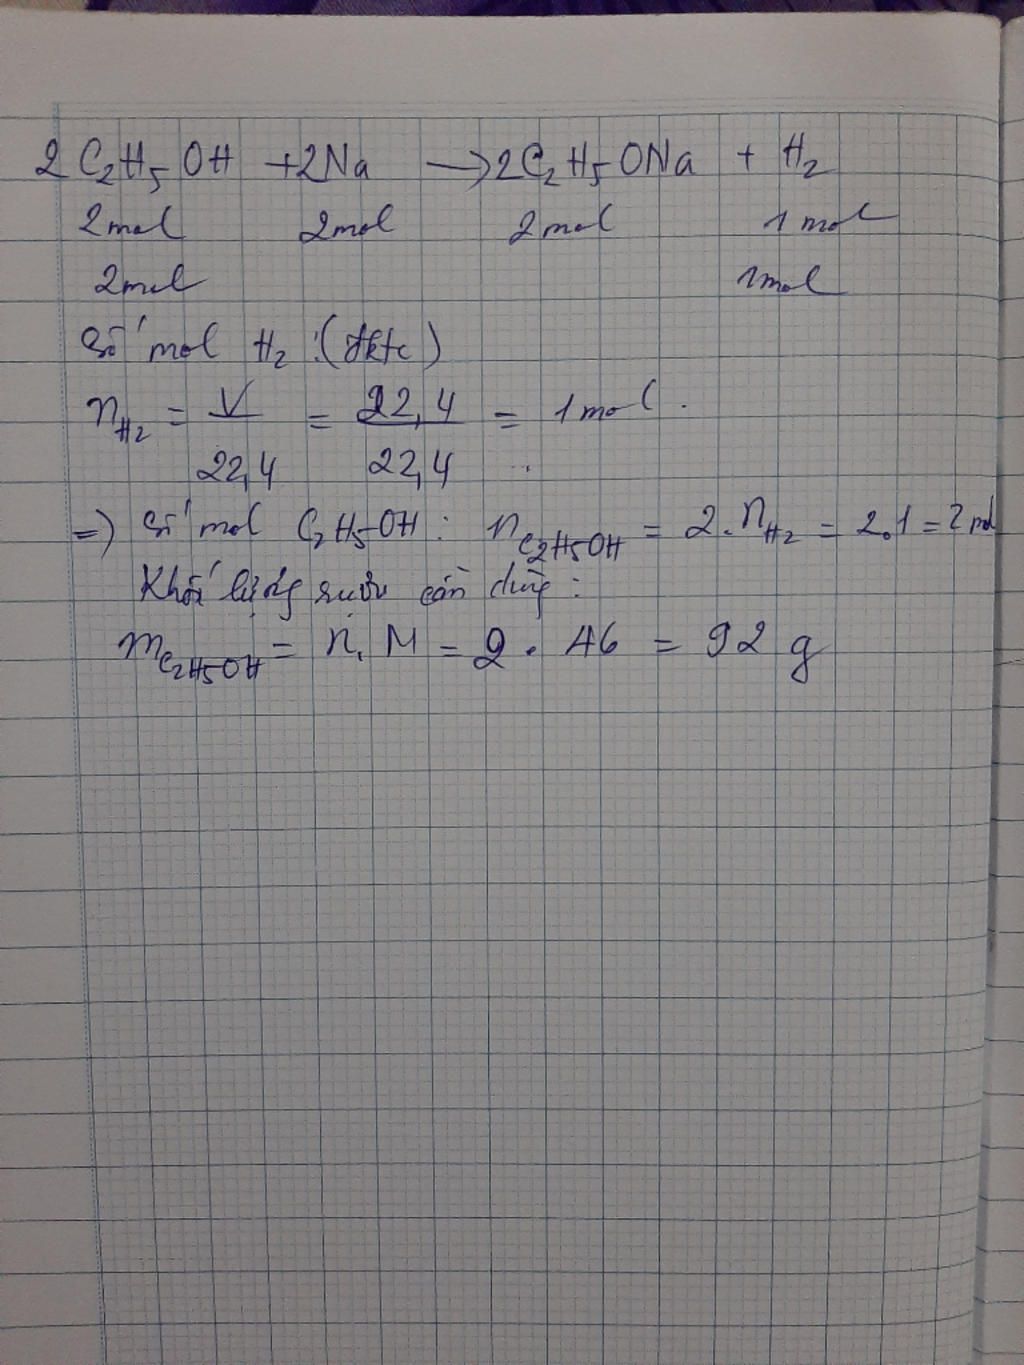 2C₂H₅OH + 2Na → 2C₂H₅ONa + H₂
2mol 2mol 2mol 1mol
2mol 1mol
Số mol H₂ : (đktc)
n_H₂ = V/22,4 = 22,4/22,4 = 1mol.
=) Số mol C₂H₅OH : n_C₂H₅OH = 2.n_H₂ = 2.1 = 2 mol
Khối lượng rượu cần dùng :
m_C₂H₅OH = n.M = 2.46 = 92 g